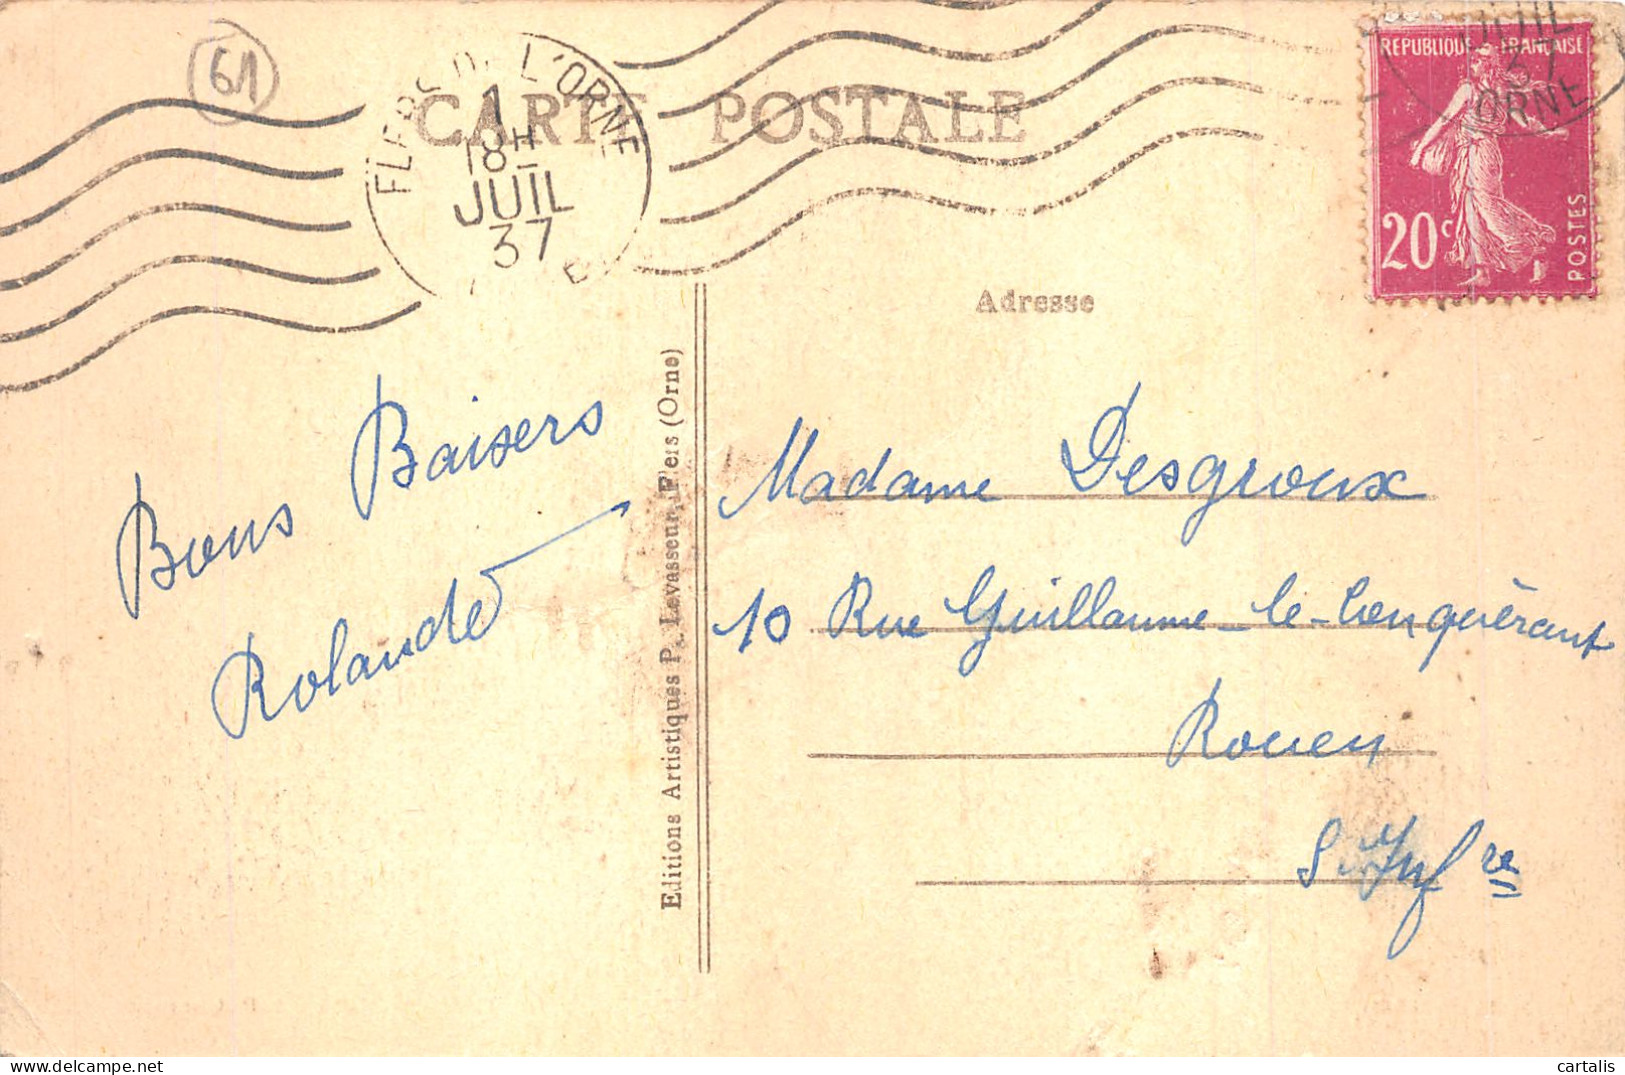 61
FLERS DE L'ORNE
1
18H
JUIL
37
CARTE POSTALE
JUIL
37
ORNE
REPUBLIQUE FRANÇAISE
20c
POSTES
Adresse
Bons Baisers
Rolande
Editions Artistiques P. Levasseur, Flers (Orne)
Madame Desgroux
10 Rue Guillaume-le-Conquérant
Rouen
S. Infre
cartalis